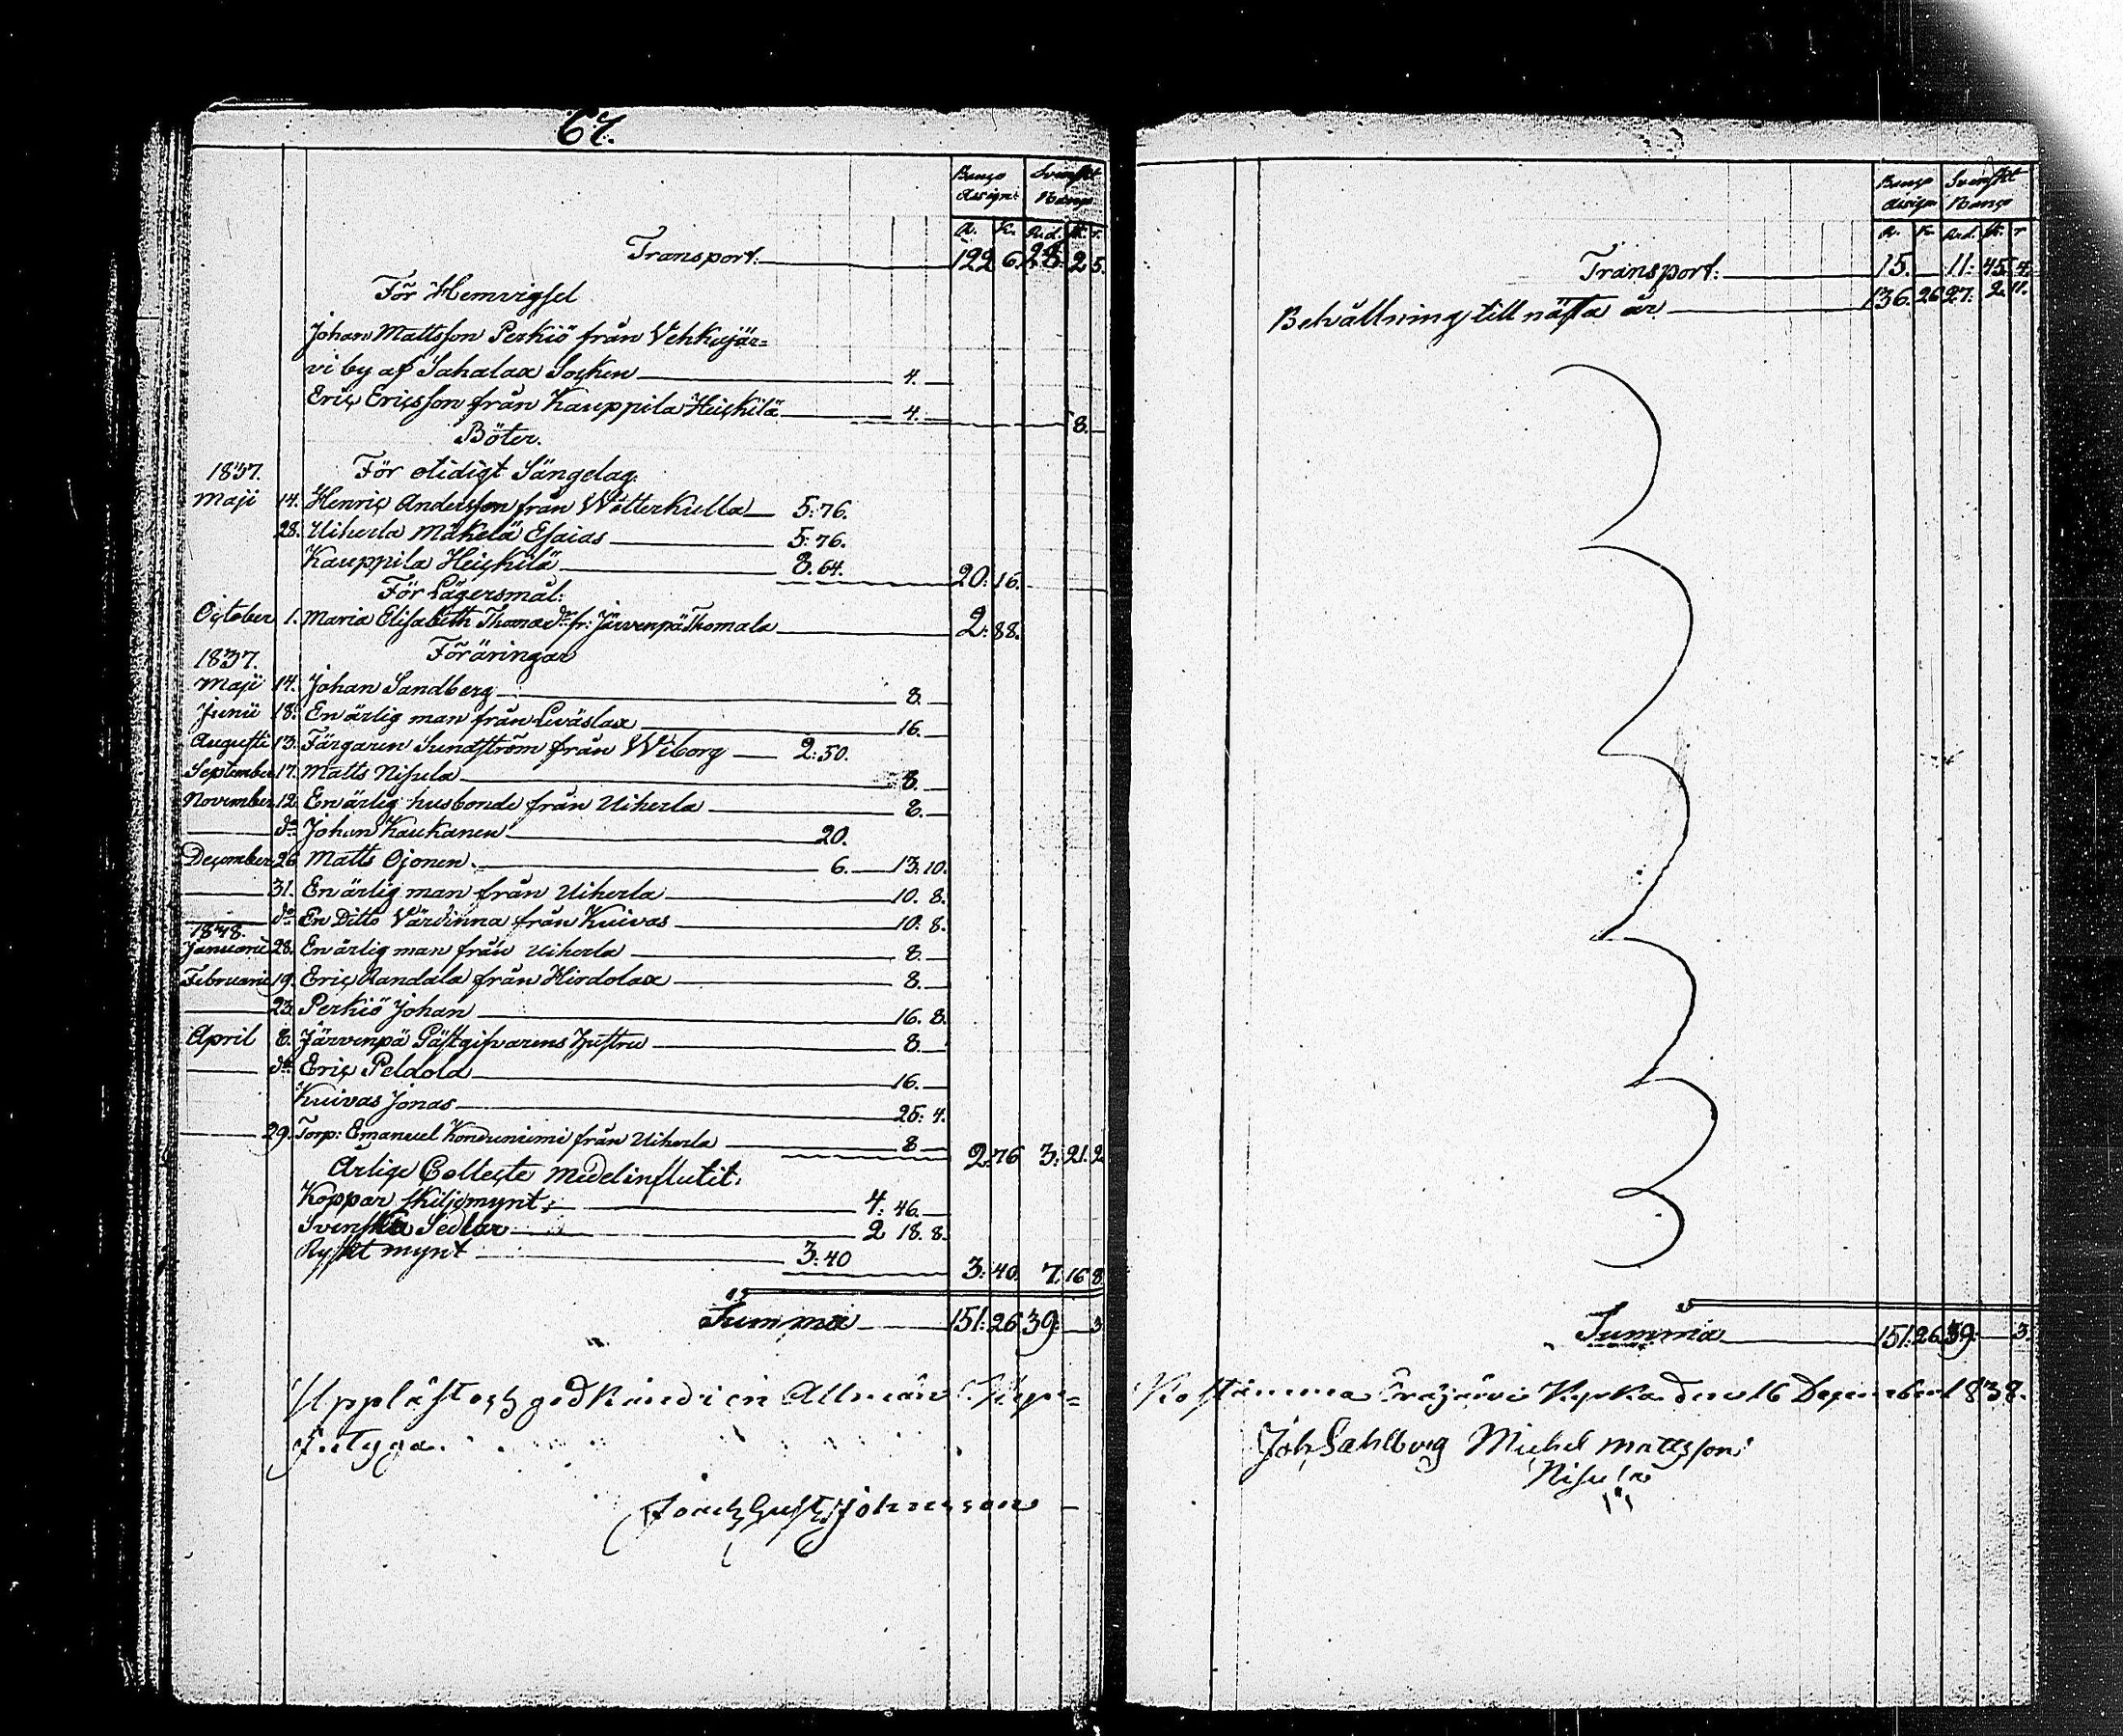 67.
Banco Svenskt
assign: Banço.
R. K. R.d. sk. r.
Transport. 122 6. 28. 2 5.
För Hemvigsel
Johan Mattsson Perkiö från Vehkajär=
vi by af Sahalax Socken 4.
Eriç Ericsson från Kauppila Heiçkilä 4. 8.
Böter.
1837. För otidigt Sängelag.
Maji 14. Henriç Andersson från Wätterkulla 5:76.
28. Uiherla Mäkelä Esaias 5:76.
Kauppila Heiçkilä 8.64. 20:16.
För Lägersmål:
October 1. Maria Elisabeth Thomædr fr: Järvenpä Thomala 2:88.
1837. Föräringar
Maji 14. Johan Sandberg 8.
Junii 18. En ärlig man från Liväslax 16.
Augusti 13. Färgaren Sundström från Wiborg 2:50.
September 17. Matts Nisula 8.
November 12. En ärlig husbonde från Uiherla 8.
do Johan Kaukanen 20.
December 26 Matts Ojonen. 6. 13.10.
31. En ärlig man från Uiherla 10. 8.
do En Ditto Värdinna från Kuivas 10. 8.
1838.
Januarii 28. En ärlig man från Uiherla 8.
Februarii 19. Eriç Randala från Hirdolax 8.
23. Perkiö Johan 16. 8.
April 8. Järvenpä Gästgifvarens Hustru 8.
do Eriç Peldola 16.
Kuivas Jonas 25. 4.
29. Torp: Emanuel Konduniemi från Uiherla 8 2:76 3:21.2
Årlige Collecte Medel influtit:
Koppar skiljemynt: 4: 46.
Svenska Sedlar 2 18. 8.
Ryskt mynt 3:40 3:40. 7.16 8.
Summa 151:26 39. 3
Uppläst och godkänd i en Allmän Kyr=
Intyga.
Joach Gust Johnsson
Banço Svenskt
assign Banço
R. K. R.d. sk. r
Transport: 15. 11: 45. 4.
Behållning till nästa år 136. 26 27: 2. 11.
Summa 151.26 39. 3.
kostämma Eräjärvi Kyrka den 16 December 1838.
Joh. Sahlberg Michel Mattsson
Nisula